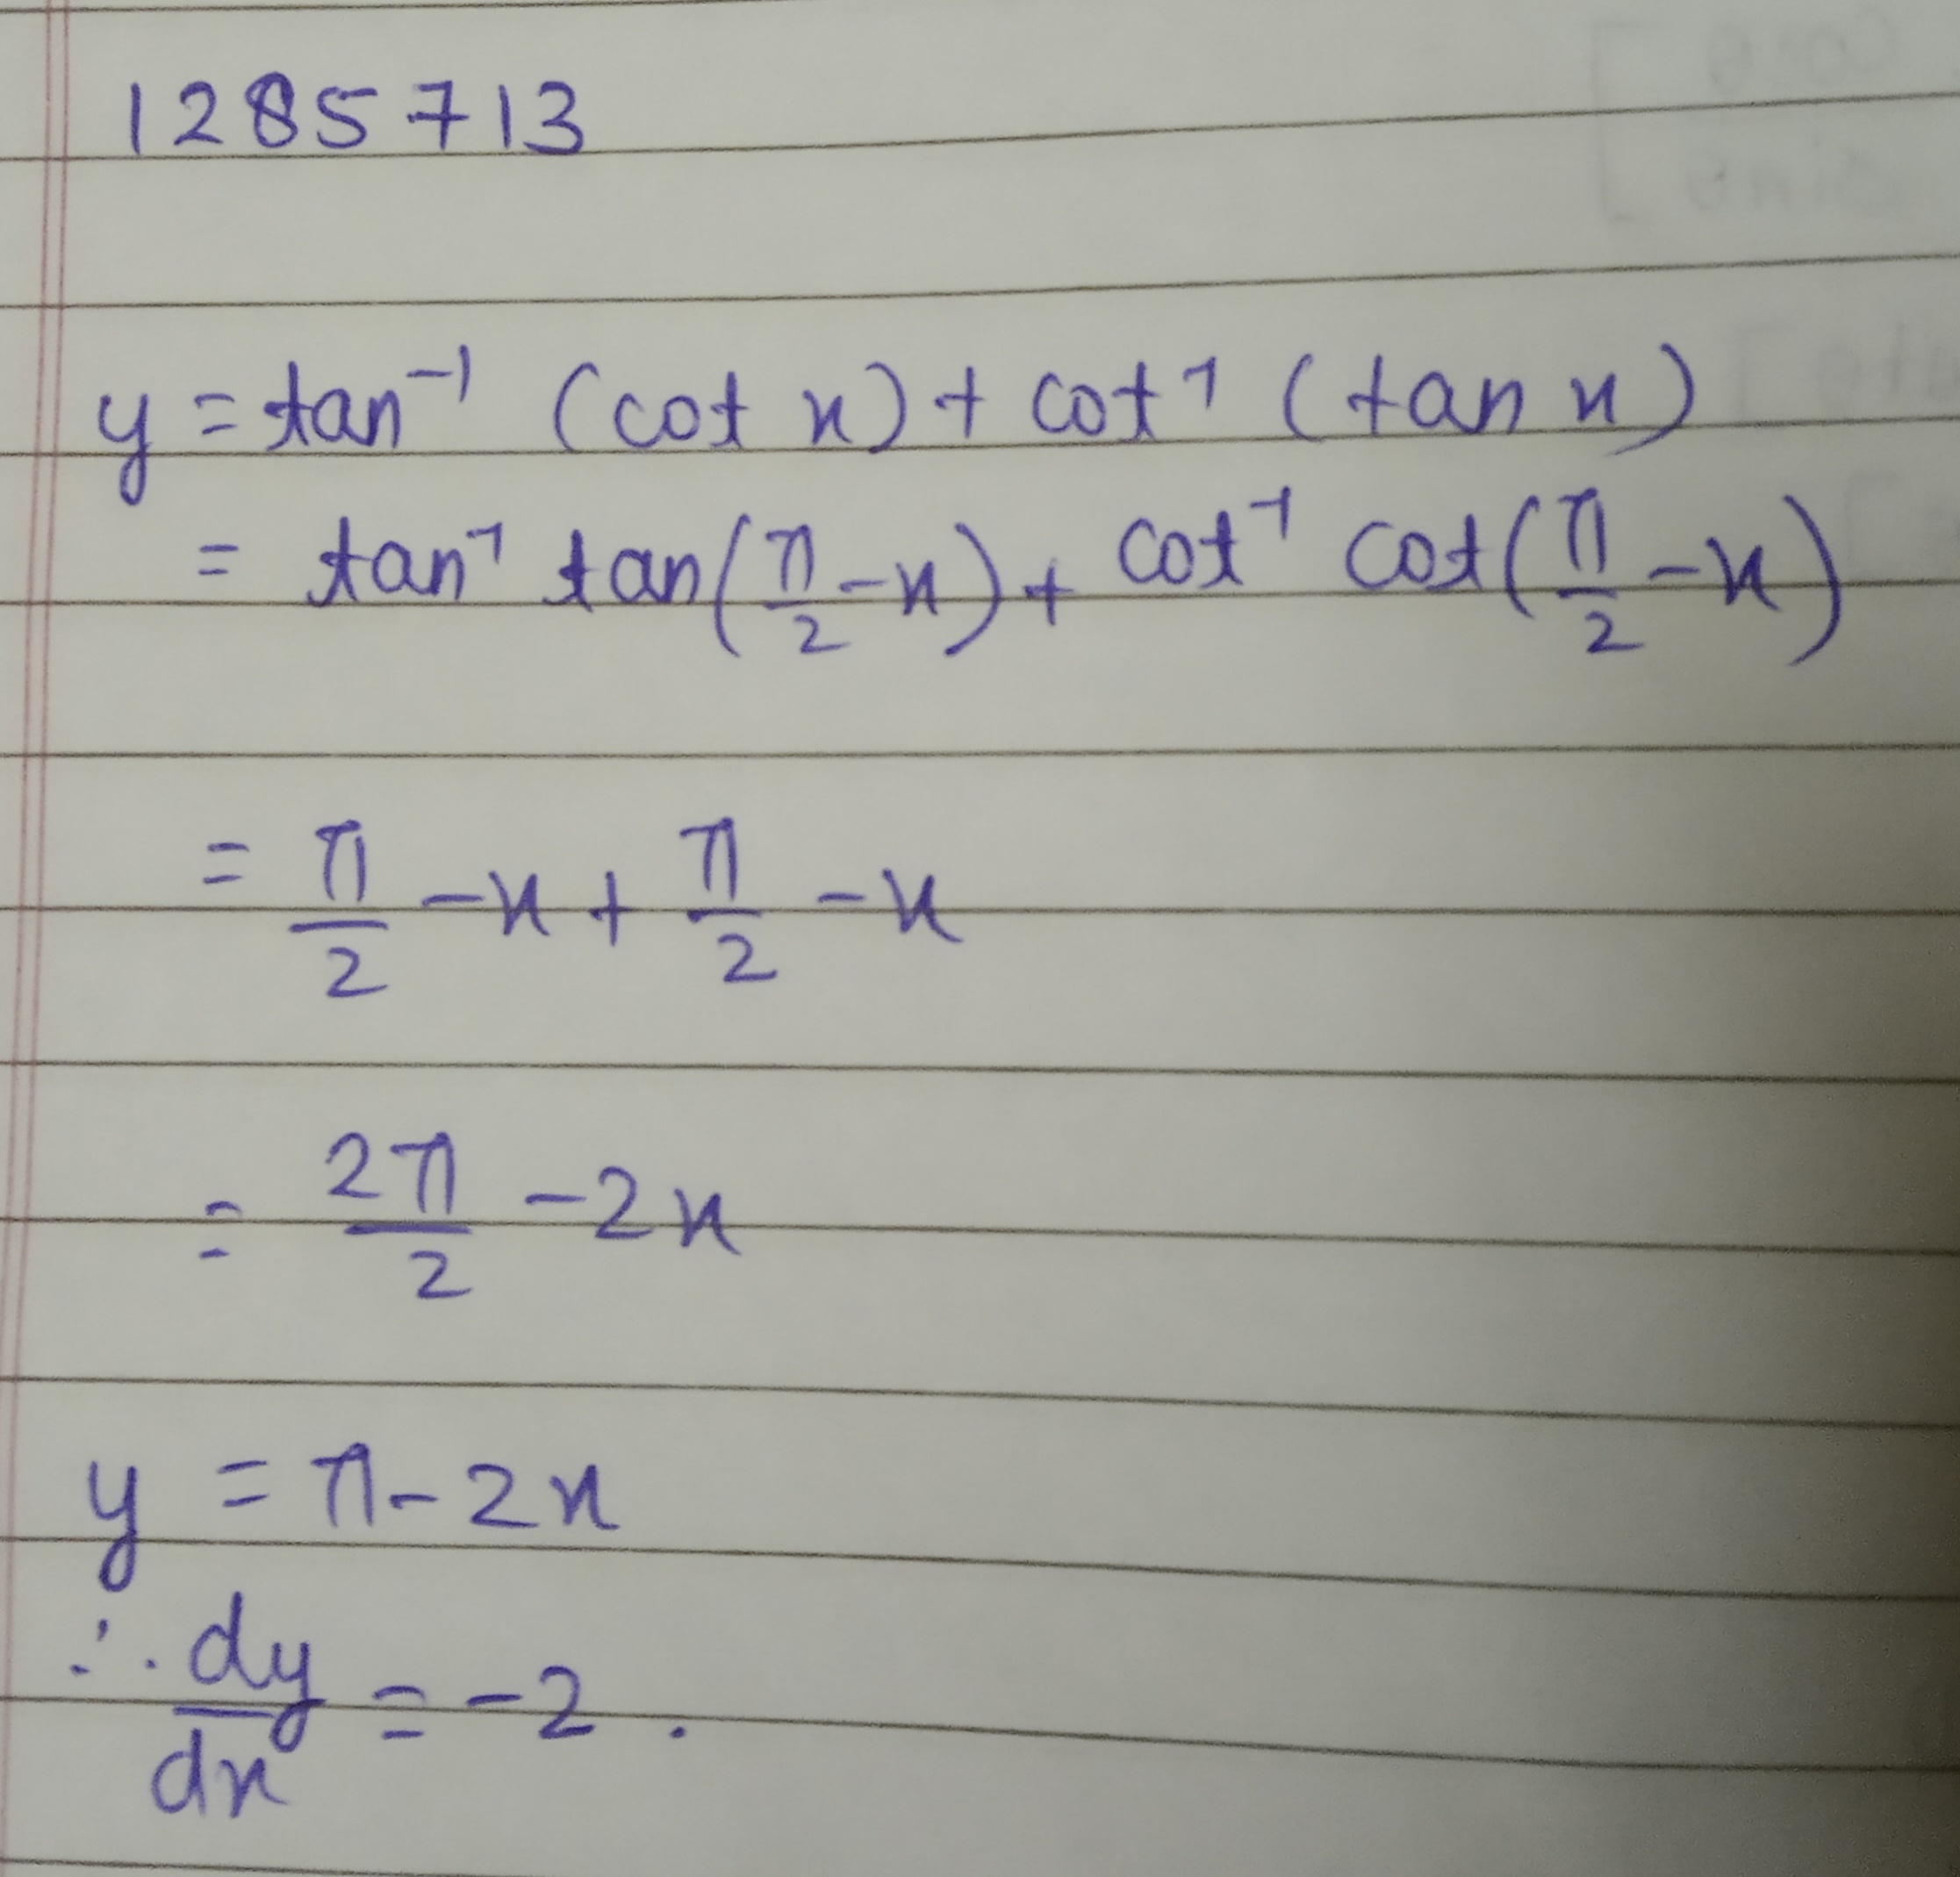 1285713
y = tan⁻¹ (cot x) + cot⁻¹ (tan x)
= tan⁻¹ tan(π/2 - x) + cot⁻¹ cot(π/2 - x)
= π/2 - x + π/2 - x
= 2π/2 - 2x
y = π - 2x
∴ dy/dx = -2.